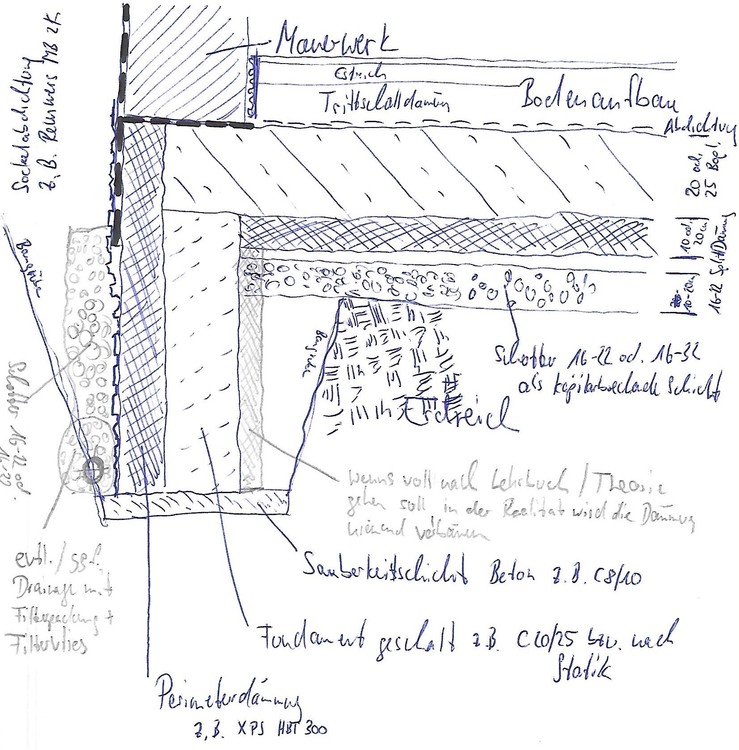 Mauerwerk
Estrich
Trittschalldämm
Bodenaufbau
Abdichtung
Sockelabdichtung
z.B. Remmers MB 2K
20 od.
25 Bopl
10 od.
20cm
10-20cm
16-22 Split/Dämmung
Baugrube
Baugrube
Schotter 16-22 od. 16-32
als kapilarbrechende Schicht
Erdreich
Schotter 16-22 od
16-32
wenns voll nach Lehrbuch / Theorie
gehen soll in der Realität wird die Dämmung
niemand verbauen
Sauberkeitschicht Beton z.B. C8/10
evtl./ggf.
Drainage mit
Filterpackung +
Filtervlies
Fundament geschalt z.B. C20/25 bzw. nach
Statik
Perimeterdämmung
z.B. XPS HBT 300